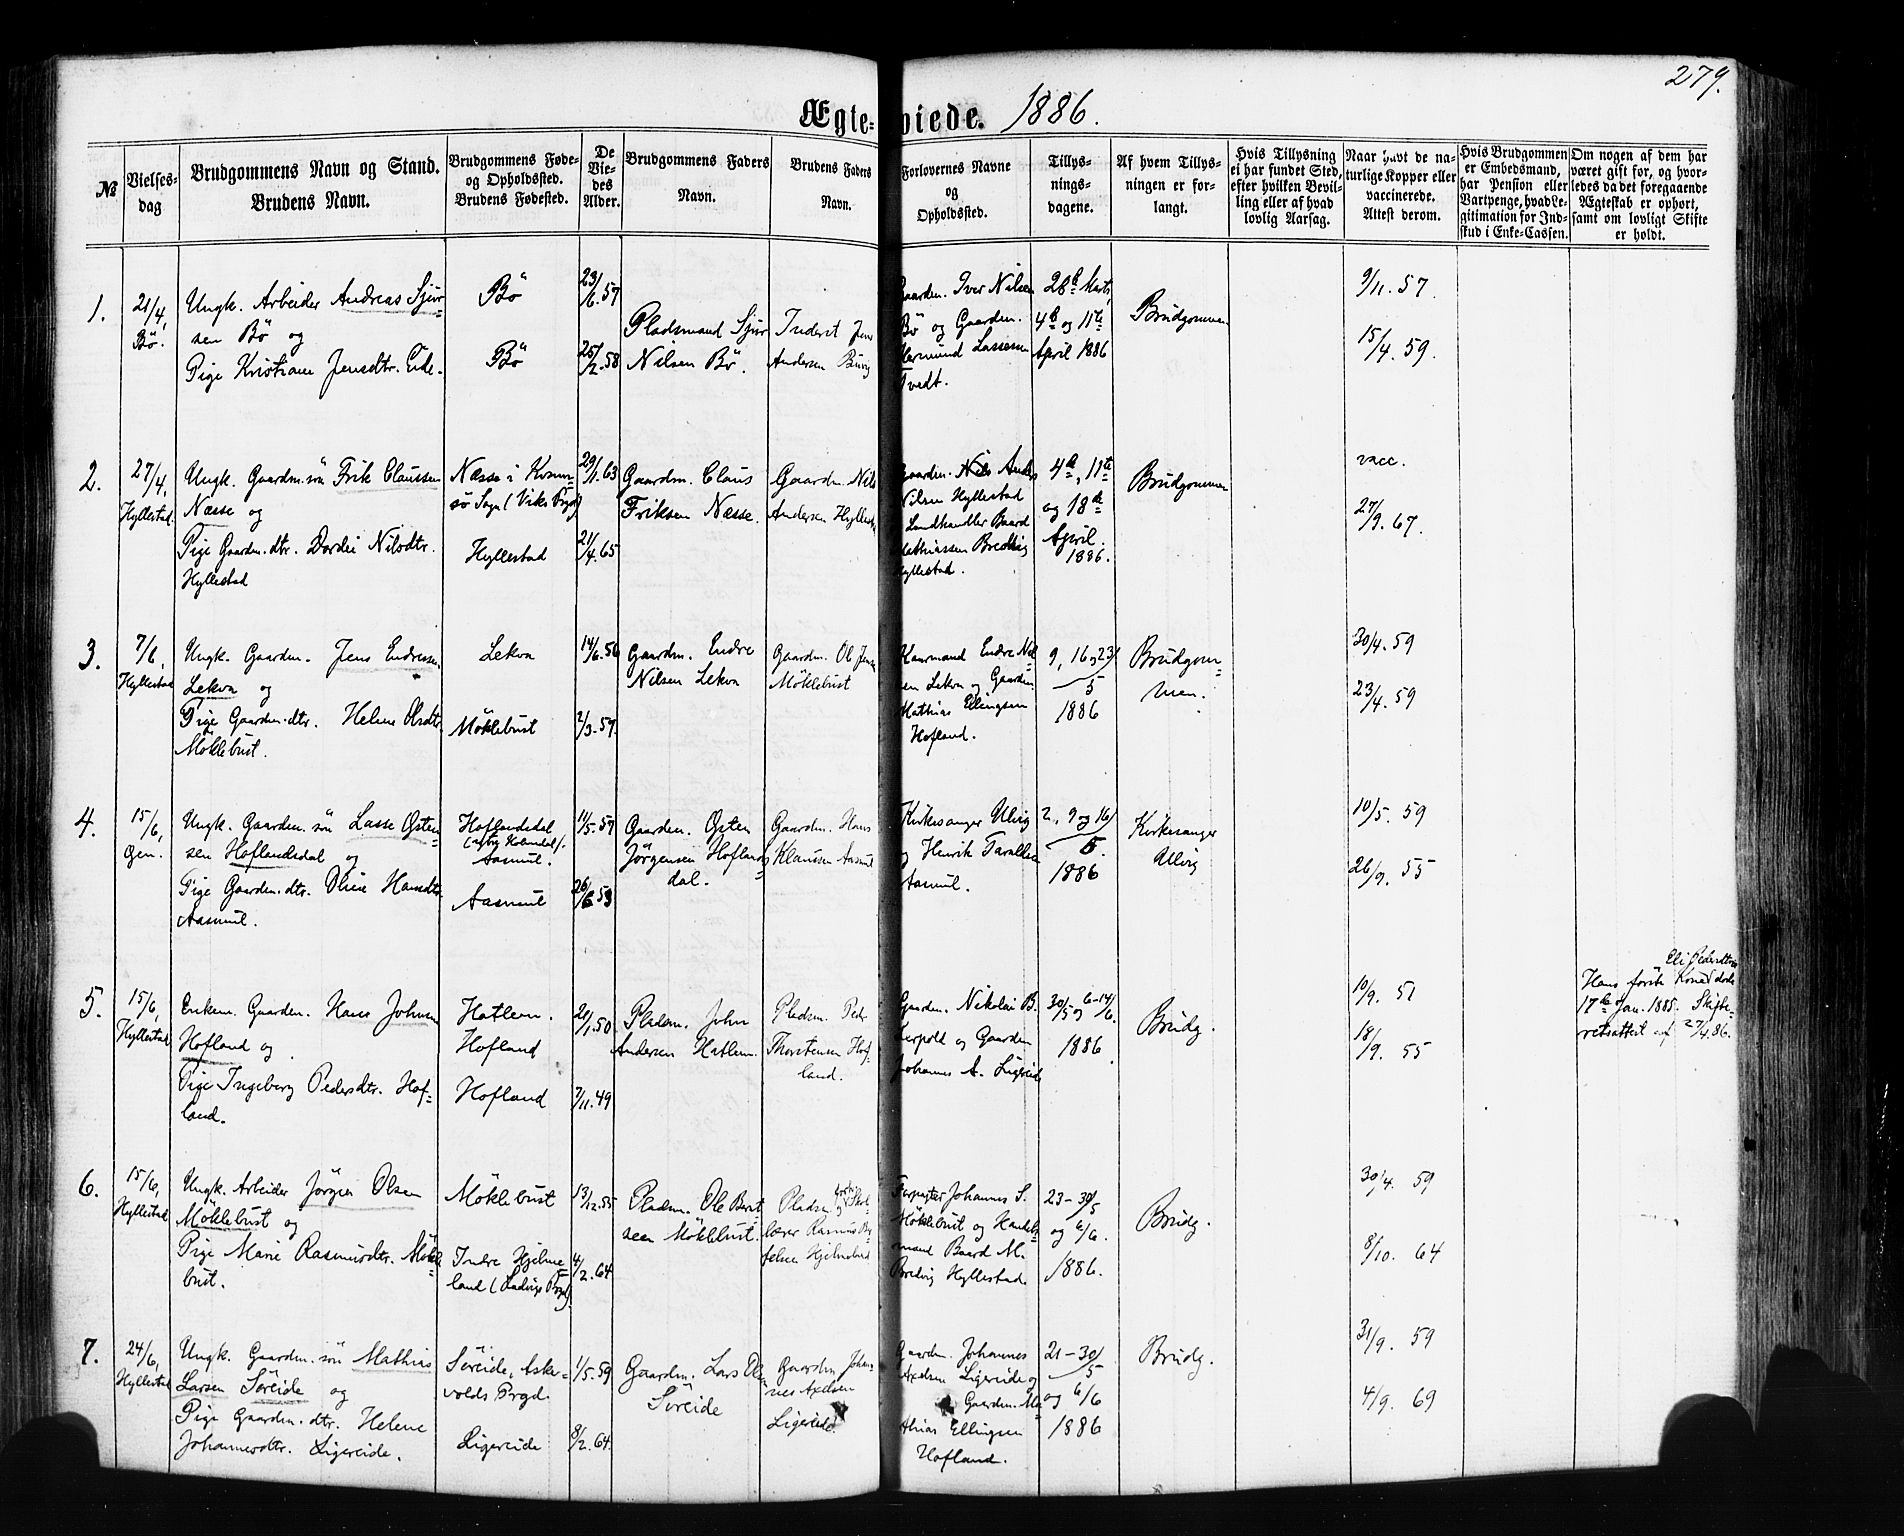 279.
Ægte- viede. 1886.
№
Vielses-
dag
Brudgommens Navn og Stand.
Brudens Navn.
Brudgommens Føde-
og Opholdssted.
Brudens Fødested.
De
Vie-
des
Alder.
Brudgommens Faders
Navn.
Brudens Faders
Navn.
Forlovernes Navne
og
Opholdssted.
Tillys-
nings-
dagene.
Af hvem Tillys-
ningen er for-
langt.
Hvis Tillysning
ei har fundet Sted,
efter hvilken Bevil-
ling eller af hvad
lovlig Aarsag.
Naar havt de na-
turlige Kopper eller
vaccinerede.
Attest derom.
Hvis Brudgommen
er Embedsmand,
har Pension eller
Vartpenge, hvad Le-
gitimation for Ind-
skud i Enke-Cassen.
Om nogen af dem har
været gift for, og hvor-
ledes da det foregaaende
Ægteskab er ophørt,
samt om lovligt Skifte
er holdt.
1.
21/4,
Bö.
Ungk. Arbeider Andreas Sjur-
sen Bö og
Pige Kristiane Jensdtr. Eide.
Bö
Bö
23/6.57
25/2.58
Pladsmand Sjur
Nilsen Bö.
Inderst Jens
Andersen
Gaardm. Iver Nilsen
Bö og Gaardm.
Lassesen
Tvedt.
28de Marts,
4de og 11te
April 1886
Brudgommen
9/11.57.
15/4.59.
2.
27/4,
Hyllestad.
Ungk. Gaardm.sön Frik Claussen
Næsse og
Pige Gaardm.dtr. Dordei Nilsdtr.
Hyllestad
Næsse i
sö Sogn (Viks Prgd)
Hyllestad
29/1.63
21/4.65
Gaardm. Claus
Friksen Næsse.
Gaardm. Nils
Andersen Hyllestad
Gaardm. Anders
Nilsen Hyllestad
Landhandler Baard
Mathiassen Bredvig
Hyllestad.
4de, 11te
og 18de
April.
1886.
Brudgommen
vacc.
27/9.67.
3.
7/6,
Hyllestad
Ungk. Gaardm. Jens Endresen
Lekva og
Pige Gaardm.dtr. Helene Olsdtr.
Möklebust.
Lekva
Möklebust
14/6.56
2/3.59.
Gaardm. Endre
Nilsen Lekva
Gaardm. Ol Jensen
Möklebust
Kaarmand Endre Nil-
sen Lekva og Gaardm.
Mathias Ellingsen
Hofland.
9, 16 og 23/
5
1886
Brudgom-
men.
30/4.59
23/4.59
4.
15/6,
Öen.
Ungk. Gaardm.sön Lasse Östen-
sen Hoflandsdal og
Pige Gaardm.dtr. Oline Hansdtr.
Aasmul.
Hoflandsdal
Aasmul.
Aasmul
11/5.57
26/6 53
Gaardm. Östen
Jörgensen Hoflands-
dal.
Gaardm. Hans
Klaussen Aasmul
Kirkesanger Ulvig
og Henrik
Aasmul.
2., 9 og 16/
5.
1886
Kirkesanger
Ulvig
10/5. 59
26/9. 55
5.
15/6,
Hyllestad
Enkem. Gaardm. Hans Johnsen
Hofland og
Pige Ingeborg Pedersdtr. Hof-
land.
Hatlem.
Hofland
Hofland
20/1.50.
7/11.49
Pladsm. John
Andersen Hatlem.
Pladsm. Peder
Thorstensen Hof-
land.
Gaardm. Nikolai B.
Lerpold og Gaardm.
Johannes A. Ligereide
30/5 og 6-14/6.
1886
Brudg.
10/9. 51
18/9. 55
Eli Pedersdtr.
Hans förste Kone döde
17de Jan. 1885. Skifte-
retsattest af 27/4.86.
6.
15/6,
Hyllestad
Ungk. Arbeider Jörgen Olsen
Möklebust og
Pige Marie Rasmusdtr. Mökle-
bust.
Möklebust
Indre Hjelme-
land (Ladvigs Prgd).
13/12.55
4/2.64
Pladsm. Ole Bernt-
sen Möklebust.
Pladsm. og Skol-
lærer Rasmus
Hjelmeland
Forpagter Johannes S.
Möklebust og Handels-
mand Baard M.
Bredvig Hyllestad.
23-30/5
og 6/6.
1886.
Brudg.
30/4. 59
8/10. 64
7.
24/6,
Hyllestad
Ungk. Gaardm.sön Mathias
Larsen Söreide og
Pige Gaardm.dtr. Helene
Johannesdtr. Ligereide.
Söreide, Aske-
volds Prgd.
Ligereide
1/5.59
8/2.64.
Gaardm. Lars Olsen
Söreide
Gaardm. Johan-
nes Axelsen
Ligereide.
Gaardm. Johannes
Axelsen Ligereide og
Gaardm. Ma-
thias Ellingsen
Hofland.
21-30/
5
og 6/6
1886
Brudg.
31/9. 59
4/9. 69